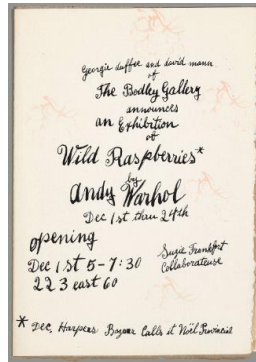 Georgie duffee and david mann
of
The Bodley Gallery
announces
an Exhibition
of
Wild Raspberries*
by
Andy Warhol
Dec 1st thru 24th
opening
Dec 1st 5-7:30
223 east 60
Suzie Frankfort
Collaborateuse
* Dec. Harpers Bazaar Calls it Noël Provincial